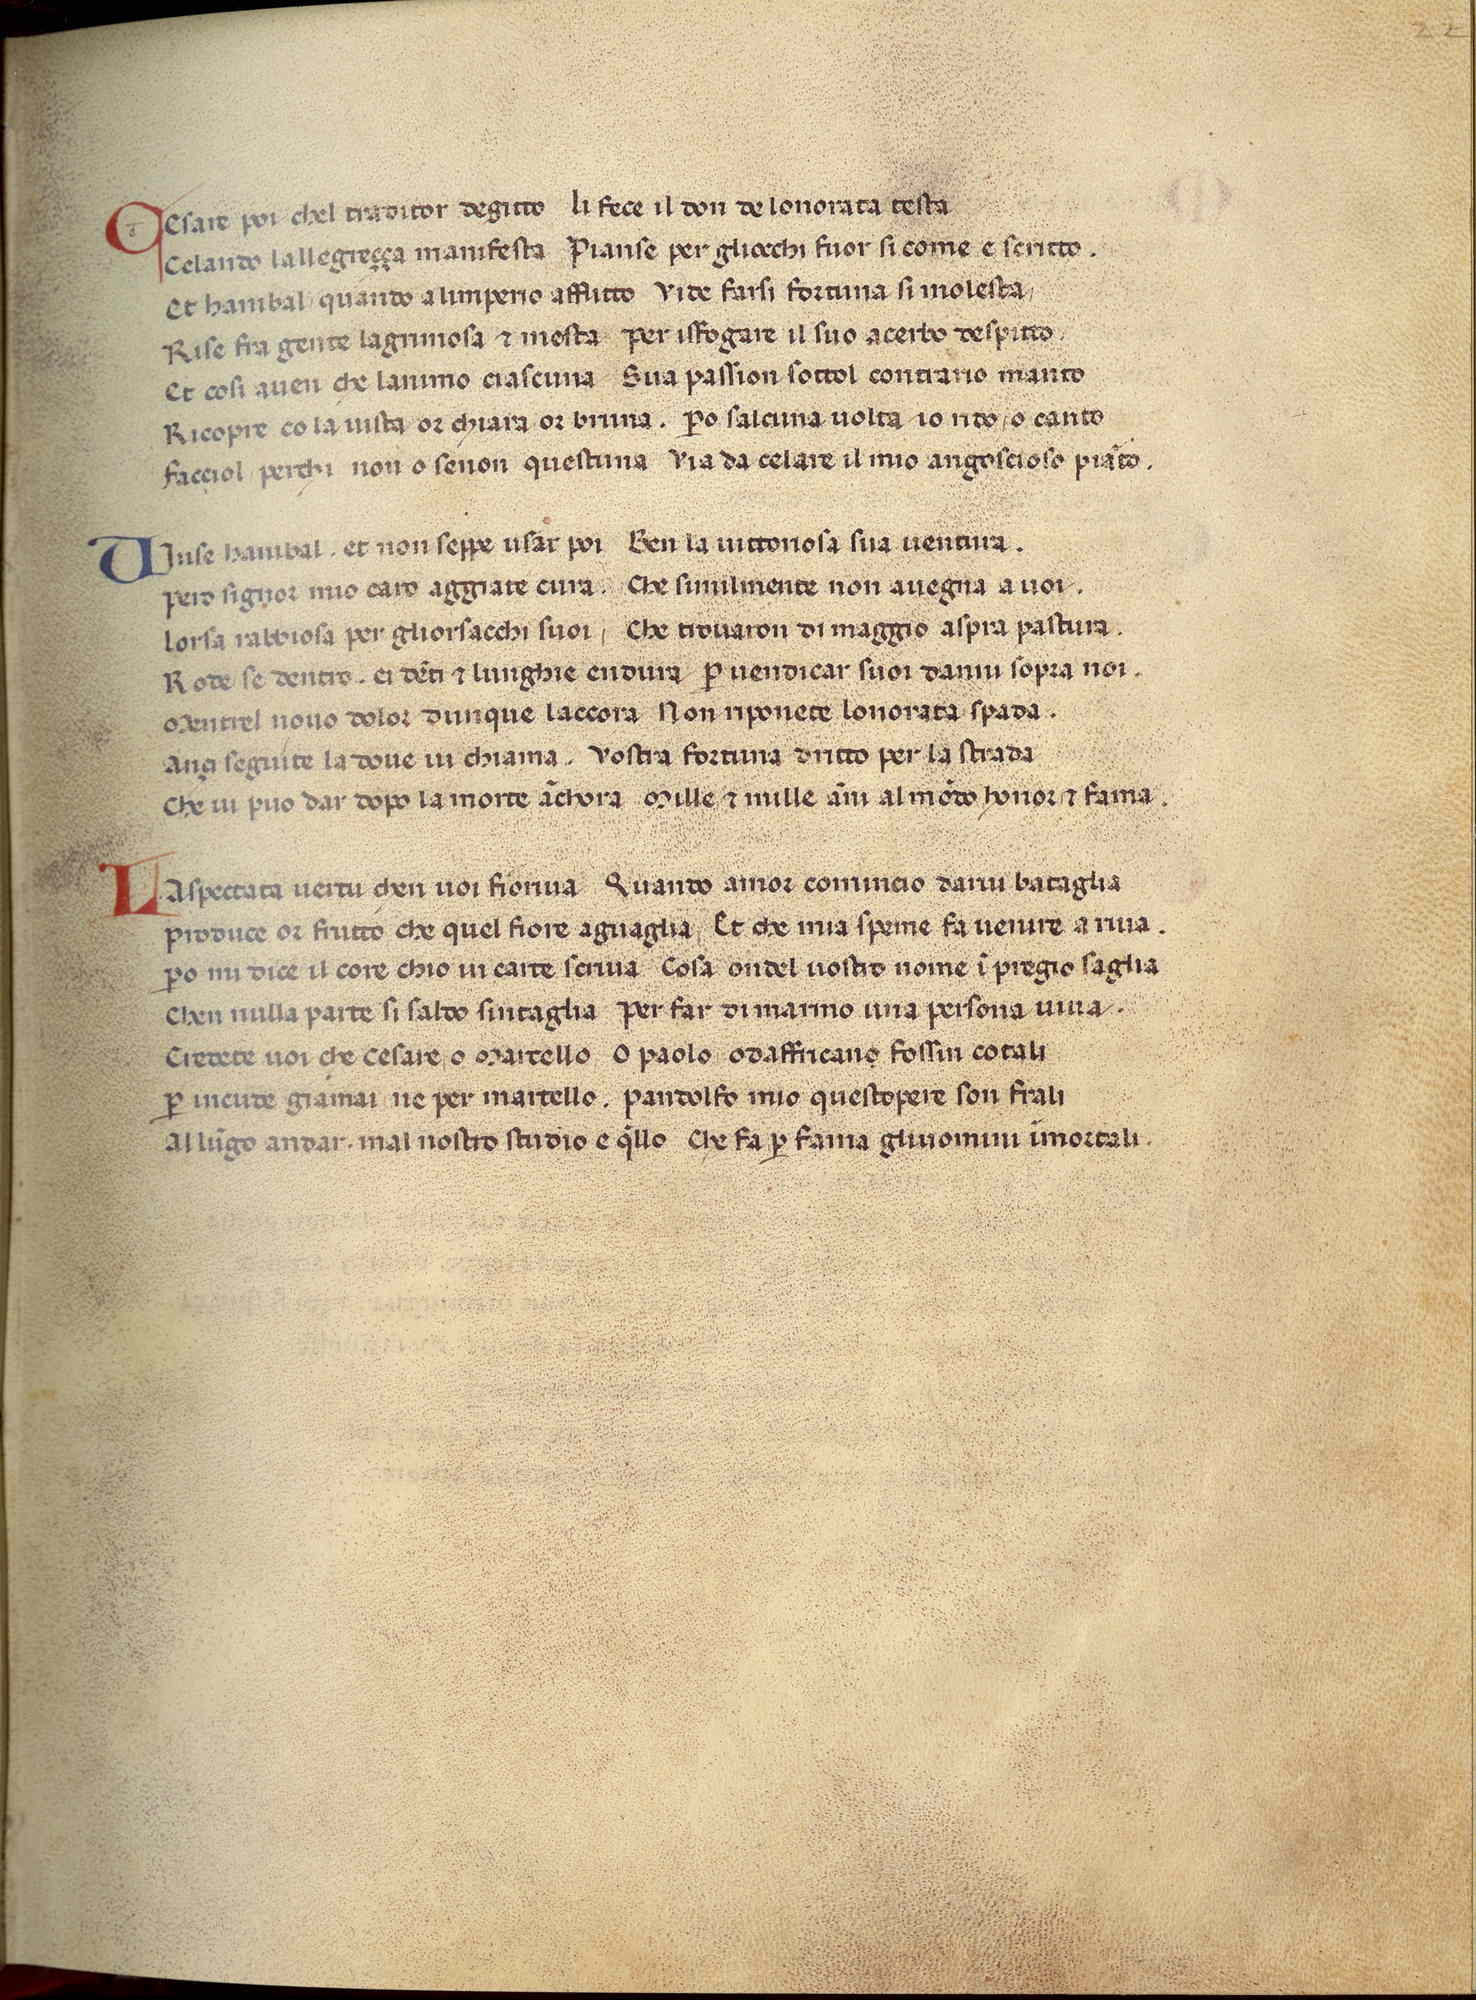 22
CEsare poi chel traditor degitto li fece il don de lonorata testa
Celando lallegreçça manifesta Pianse per gliocchi fuor si come e scritto.
Et hanibal quando alimperio afflitto Vide farsi fortuna si molesta
Rise fra gente lagrimosa ⁊ mesta Per isfogare il suo acerbo despitto
Et cosi aven che lanimo ciascuna Sua passion sottol contrario manto
Ricopre co la vista or chiara or bruna. Po̅ salcuna volta io rido o canto
Facciol perchi non o senon questuna Via da celare il mio angoscioso pia̅to.
VInse hanibal. et non seppe usar poi Ben la vittoriosa sua ventura.
Pero signor mio caro aggiate cura. Che similmente non avegna a voi.
Lorsa rabbiosa per gliorsacchi suoi Che trovaron di maggio aspra pastura.
Rode se dentro. ei de̅ti ⁊ lunghie endura ꝑ vendicar suoi danni sopra noi.
Mentrel novo dolor dunque laccora Non riponete lonorata spada.
Ançi seguite la dove vi chiama. Vostra fortuna dritto per la strada
Che vi puo dar dopo la morte a̅chora Mille ⁊ mille a̅ni al mo̅do honor ⁊ fama.
LAspectata vertu chen voi fioriva Quando amor comincio darvi bataglia
Produce or frutto che quel fiore aguaglia Et che mia speme fa venire a riva.
Po̅ mi dice il core chio in carte scriva Cosa ondel vostro nome i̅ pregio saglia
Chen nulla parte si saldo sintaglia Per far di marmo una persona viva.
Credete voi che Cesare o Martello O paolo odaffricano fossin cotali
ꝑ incude giamai ne per martello. Pandolfo mio questopere son frali
Al lu̅go andar. mal nostro studio e q̅llo Che fa ꝑ fama gliuomini i̅mortali.